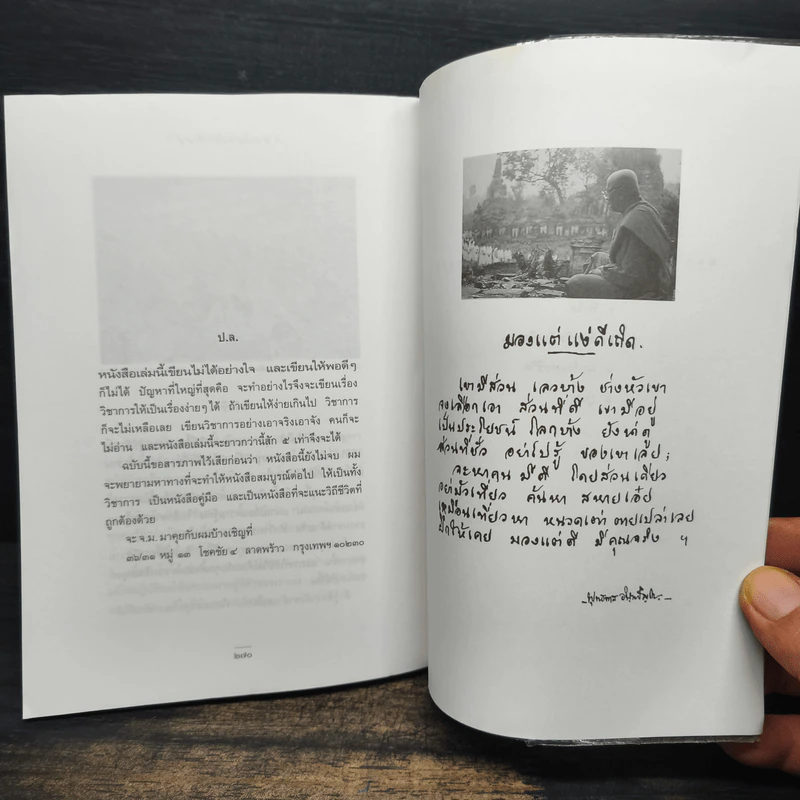 ป.ล.
หนังสือเล่มนี้เขียนไม่ได้อย่างใจ และเขียนให้พอดีๆ
ก็ไม่ได้ ปัญหาที่ใหญ่ที่สุดคือ จะทำอย่างไรจึงจะเขียนเรื่อง
วิชาการให้เป็นเรื่องง่ายๆ ได้ ถ้าเขียนให้ง่ายเกินไป วิชาการ
ก็จะไม่เหลือเลย เขียนวิชาการอย่างเอาจริงเอาจัง คนก็จะ
ไม่อ่าน และหนังสือเล่มนี้จะยาวกว่านี้สัก ๕ เท่าจึงจะได้
ฉบับนี้ขอสารภาพไว้เสียก่อนว่า หนังสือนี้ยังไม่จบ ผม
จะพยายามหาทางที่จะทำให้หนังสือสมบูรณ์ต่อไป ให้เป็นทั้ง
วิชาการ เป็นหนังสือคู่มือ และเป็นหนังสือที่จะแนะวิถีชีวิตที่
ถูกต้องด้วย
จะ จ.ม. มาคุยกับผมบ้างเชิญที่
๓๖/๓๑ หมู่ ๑๓ โชคชัย ๔ ลาดพร้าว กรุงเทพฯ ๑๐๒๓๐
มองแต่ แง่ดีเถิด.
เขามีส่วน เลวบ้าง ช่างหัวเขา
จงเลือกเอา ส่วนที่ดี เขามีอยู่
เป็นประโยชน์ โลกบ้าง ยังน่าดู
ส่วนที่ชั่ว อย่าไปรู้ ของเขาเลย;
จะหาคน มีดี โดยส่วนเดียว
อย่ามัวเที่ยว ค้นหา สหายเอ๋ย
เหมือนเที่ยวหา หนวดเต่า ตายเปล่าเลย
ฝึกให้เคย มองแต่ดี มีคุณจริง ฯ